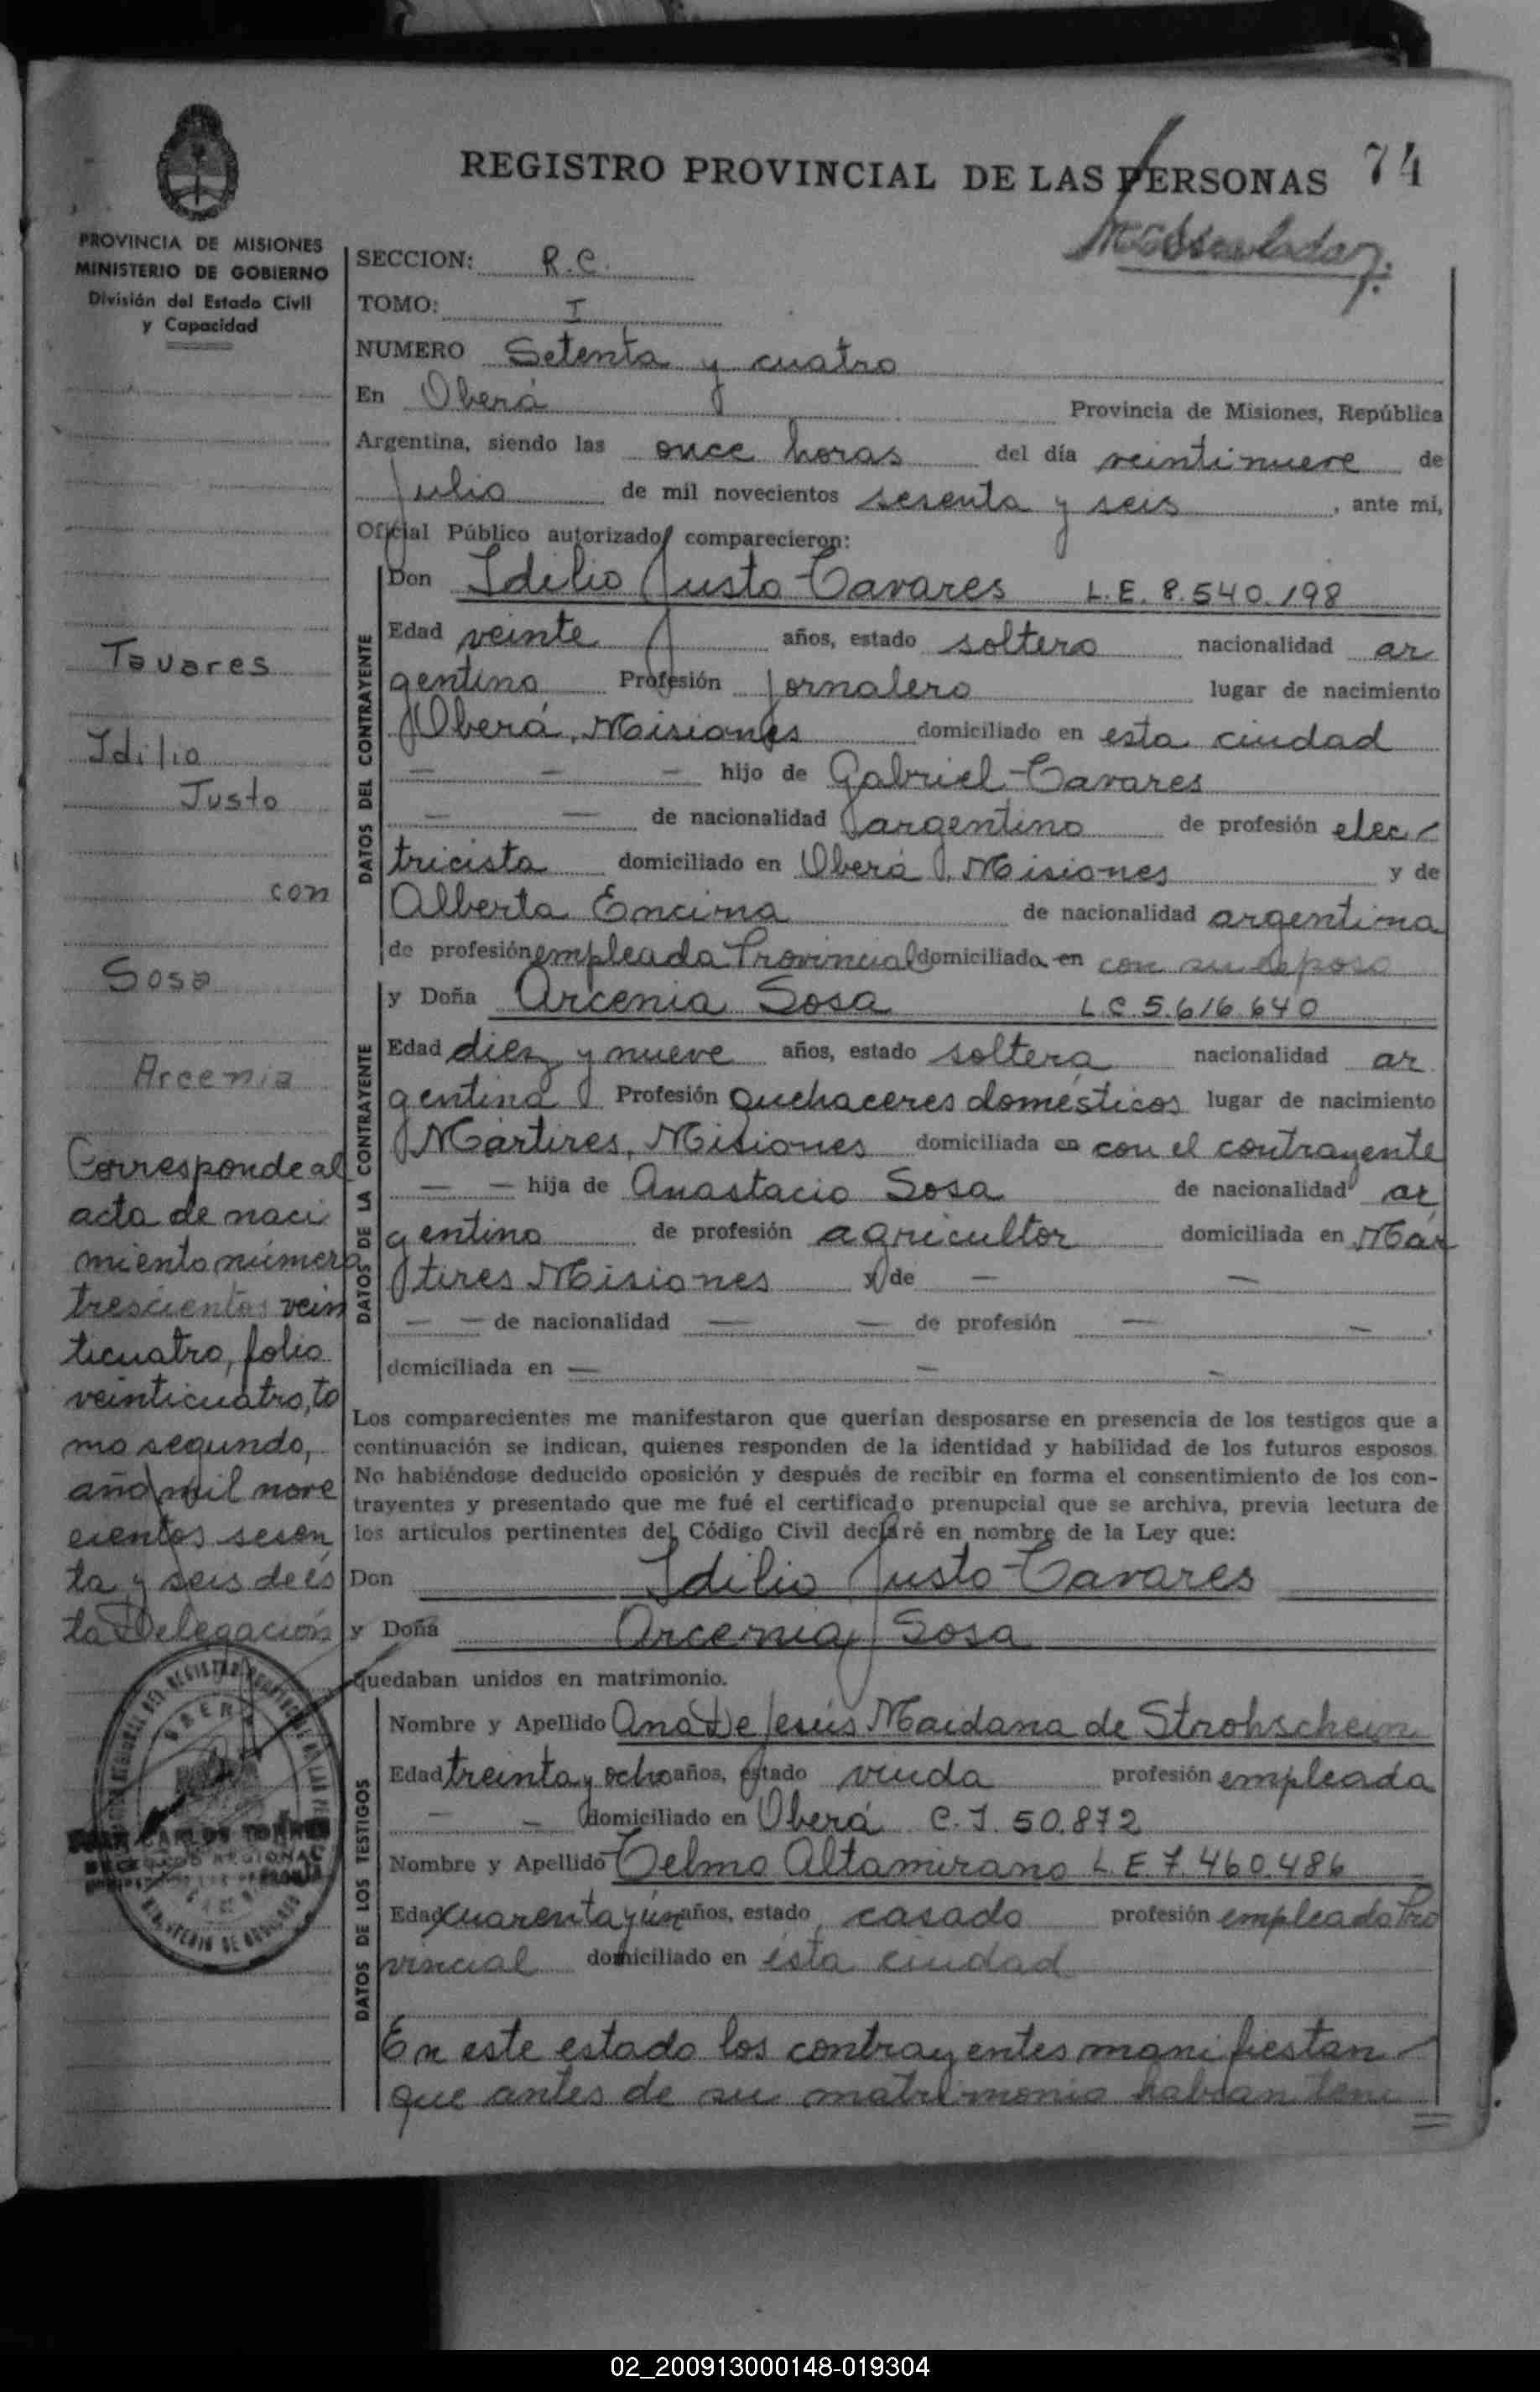 REGISTRO PROVINCIAL DE LAS PERSONAS 74
PROVINCIA DE MISIONES
MINISTERIO DE GOBIERNO
División del Estado Civil
y Capacidad
SECCION: R.C.
TOMO: I
NUMERO Setenta y cuatro
En Oberá Provincia de Misiones, República
Argentina, siendo las once horas del día veintinueve de
Julio de mil novecientos sesenta y seis, ante mi,
Oficial Público autorizado comparecieron:
Tavares
Idilio
Justo
con
Sosa
Arcenia
Corresponde al
acta de naci
miento número
trescientos vein
ticuatro, folio
veinticuatro, to
mo segundo,
año mil nove
cientos sesen
ta y seis de és
ta Delegación
DATOS DEL CONTRAYENTE
Don Idilio Justo Tavares L.E. 8.540.198
Edad veinte años, estado soltero nacionalidad ar
gentino Profesión jornalero lugar de nacimiento
Oberá, Misiones domiciliado en esta ciudad
— — — hijo de Gabriel Tavares
— — de nacionalidad argentino de profesión elec-
tricista domiciliado en Oberá, Misiones y de
Alberta Encina de nacionalidad argentina
de profesión empleada Provincial domiciliada en con su esposo
DATOS DE LA CONTRAYENTE
y Doña Arcenia Sosa L.C. 5.616.640
Edad diez y nueve años, estado soltera nacionalidad ar
gentina Profesión quehaceres domésticos lugar de nacimiento
Mártires, Misiones domiciliada en con el contrayente
— — hija de Anastacio Sosa de nacionalidad ar
gentino de profesión agricultor domiciliada en Már
tires Misiones y de — —
— — de nacionalidad — — de profesión — —
domiciliada en — — —
Los comparecientes me manifestaron que querían desposarse en presencia de los testigos que a
continuación se indican, quienes responden de la identidad y habilidad de los futuros esposos.
No habiéndose deducido oposición y después de recibir en forma el consentimiento de los con-
trayentes y presentado que me fué el certificado prenupcial que se archiva, previa lectura de
los artículos pertinentes del Código Civil declaré en nombre de la Ley que:
Don Idilio Justo Tavares
y Doña Arcenia Sosa
quedaban unidos en matrimonio.
DATOS DE LOS TESTIGOS
Nombre y Apellido Ana De Jesús Maidana de Strohschein
Edad treinta y ocho años, estado viuda profesión empleada
— — domiciliado en Oberá C.I. 50.872
Nombre y Apellido Telmo Altamirano L.E. 7.460.486
Edad cuarenta y ún años, estado casado profesión empleado Pro
vincial domiciliado en ésta ciudad
En este estado los contrayentes manifiestan
que antes de su matrimonio habían teni
02_200913000148-019304